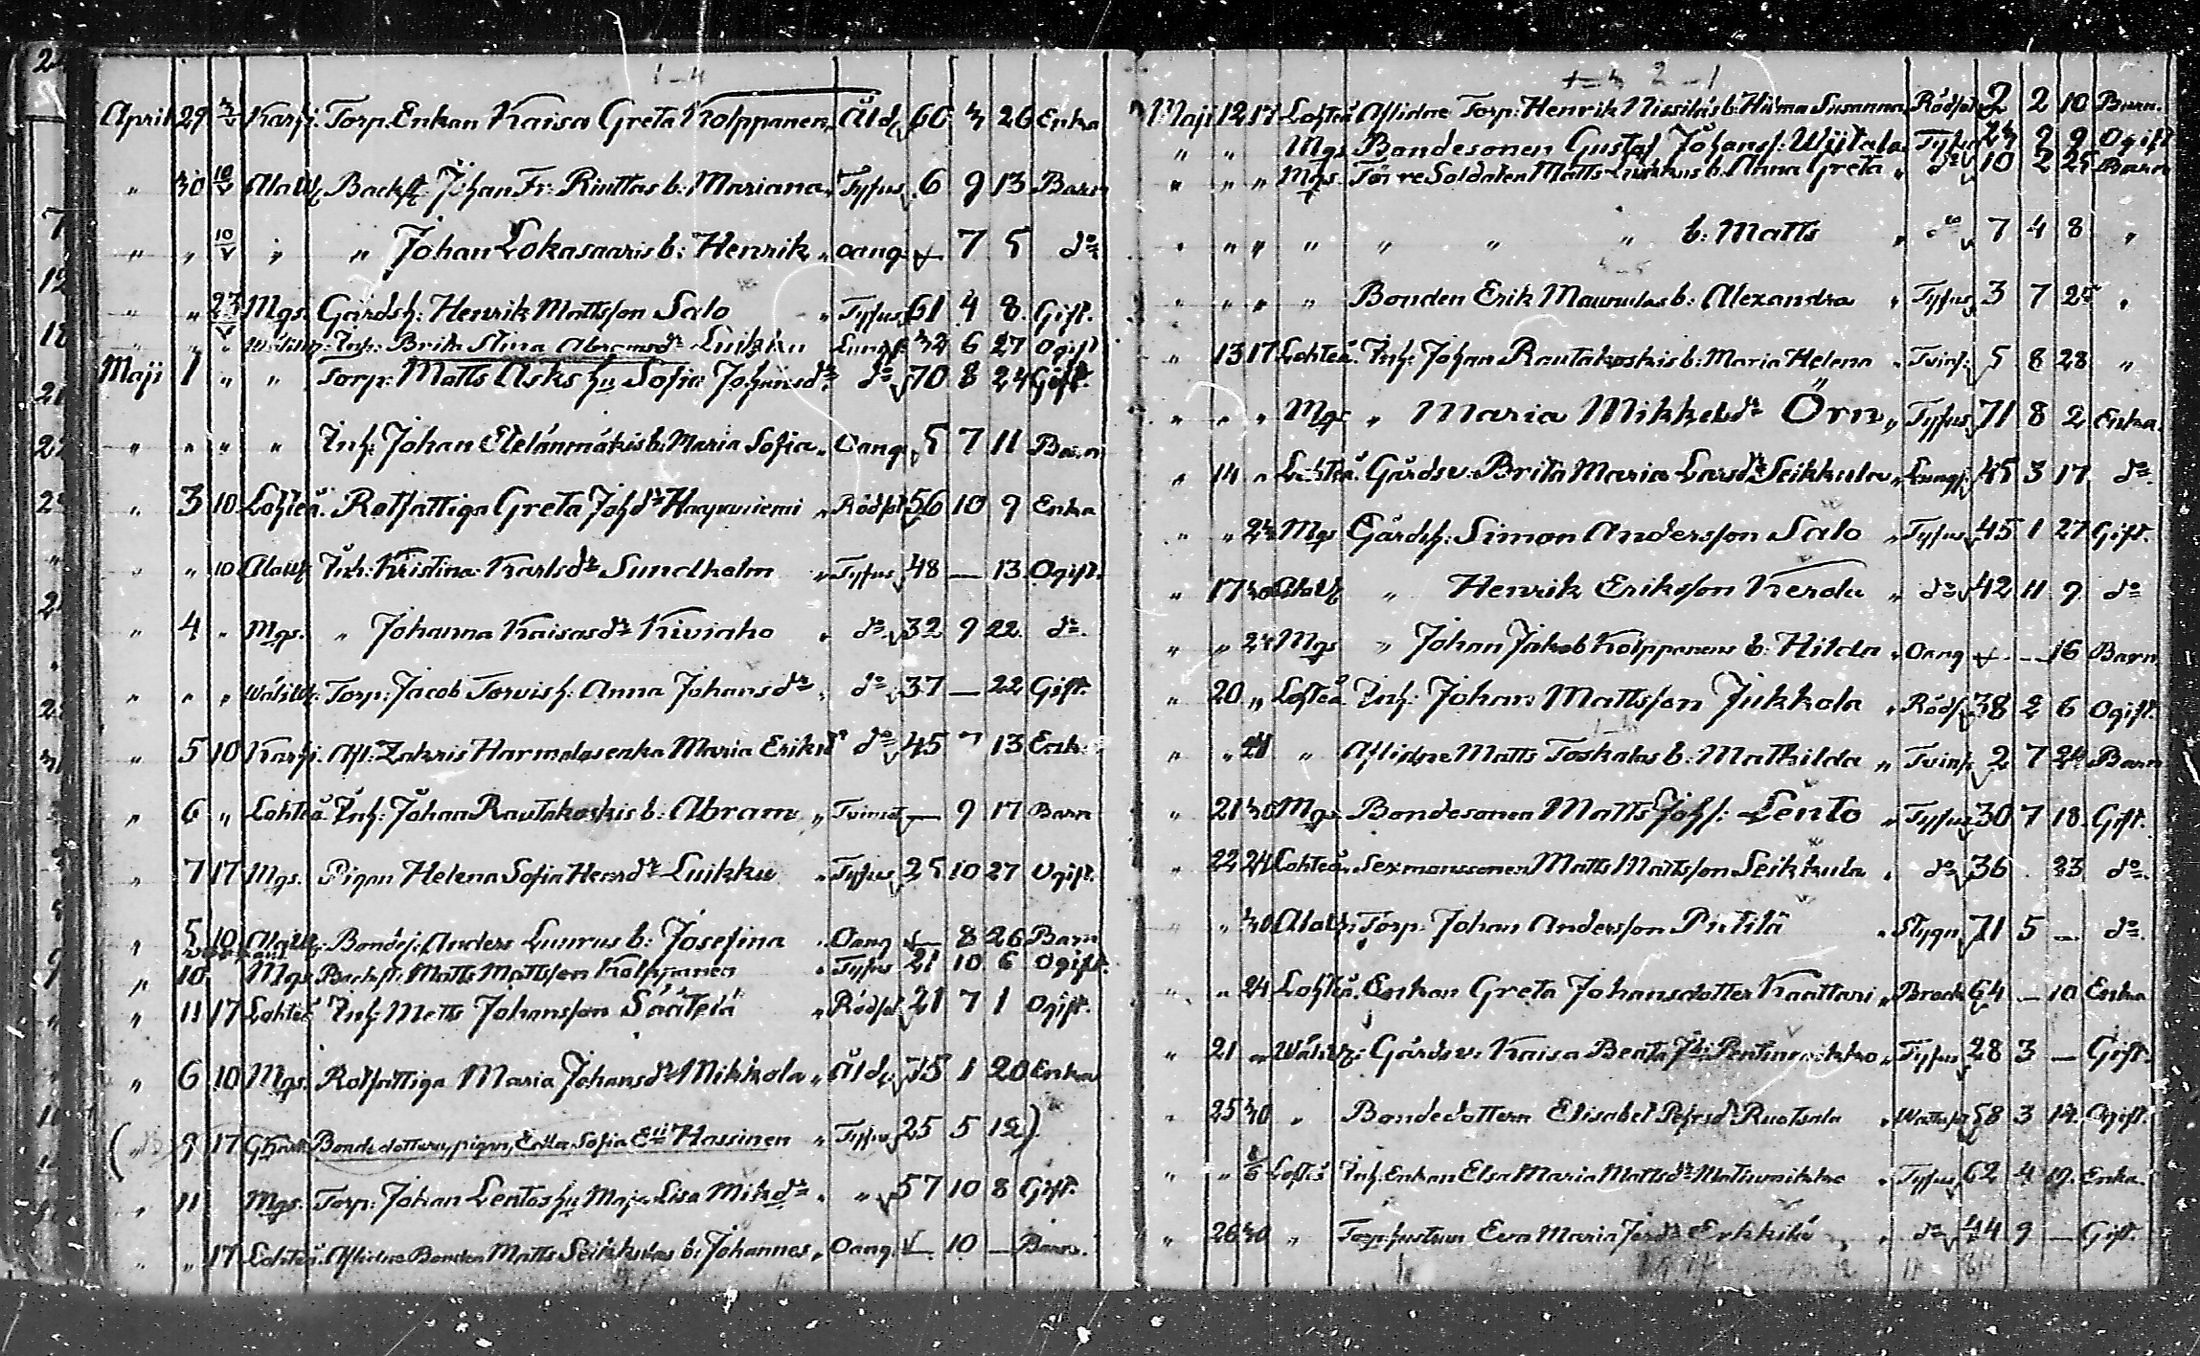 April 29 3/V Karhi. Torp. Enkan Kaisa Greta Kolppanen, Åld. 60 3 26 Enka
" 30 10/V Alaw. Backst. Johan Fr: Rinttas b: Mariana, Tyfus 6 9 13 Barn
" " 10/V " " Johan Lokasaaris b: Henrik, oang. — 7 5 d:o
" " 23/V Mgs. Gårdsh: Henrik Mattsson Salo " Tyfus 61 4 8. Gift.
" " " Inh: Brita Stina Abramsd:r Luikku Lungs. 32 6 27 Ogift
Maji 1 " " Torp: Matts Asks hu Sofia Johansd:r d:o 70 8 24 Gift.
" " " " Inh: Johan Etelänmäkis b: Maria Sofia, Oang. 5 7 11 Barn
" 3 10 Lohteå. Rotfattiga Greta Johd:r Haapaniemi " Rödsot 56 10 9 Enka
" " 10 Alaw. Inh: Kristina Karlsd:r Sundholm " Tyfus 48 — 13. Ogift.
" 4 " Mgs. " Johanna Kaisasd:r Kiviaho " d:o 32 9 22. d:o
" " " Wäliw: Torp: Jacob Torvis h: Anna Johansd:r " d:o 37 — 22 Gift.
" 5 10 Karhi. Afl: Zakris Harmalas enka Maria Eriksd:r d:o 45 7 13 Enka
" 6 " Lohteå Inh: Johan Rautakoskis b: Abram, " Tvinsot — 9 17 Barn
" 7 17 Mgs. Pigan Helena Sofia Henrd:r Luikku " Tyfus 25 10 27 Ogift.
" 5 10 Alaw: Bondes: Anders Luurus b: Josefina " Oang — 8 26 Barn
" 10 Mgs. Backst: Matts Mattsson Kolppanen " Tyfus 21 10 6 Ogift.
" 11 17 Lohteå Inh: Matts Johansson Säätelä " Rödsot 21 7 1 Ogift.
" 6 10 Mgs. Rotfattiga Maria Johansd:r Mikkola " Åld. 75 1 20 Enka
( " 9 17 Bondedottern, pigan, Sofia Hassinen " Tyfus 25 5 12)
" 11 Mgs. Torp: Johan Lentos hu Maja Lisa Mikd:r " " 57 10 8 Gift.
" " 17 Lohteå. Aflidne Bonden Matts Seikkulas b: Johannes, Oang. — 10 — Barn.
Maji 12 17 Lohteå Aflidne Torp: Henrik Nissiläs b: Hilma Susanna, Rödsot 2 2 10 Barn.
" " Mgs Bondesonen Gustaf Johanss: Wiitala Tyfus 23 9 9 Ogift
" " " Mgs. Förre Soldaten Matts Luikkus b. Anna Greta " d:o 10 2 25 Barn
" " " " " " " b: Matts " d:o 7 4 8 "
" " " " Bonden Erik Maunulas b: Alexandra " Tyfus 3 7 25 "
" 13 17 Lohteå. Inh: Johan Rautakoskis b: Maria Helena " Tvins. 5 8 28 "
" " " Mgs " Maria Mikkelsd:r Örn, Tyfus 71 8 2 Enka.
" 14 " Lohteå. Gårdsv: Brita Maria Larsd:r Seikkula, Lungs. 45 3 17 d:o
" " 24 Mgs Gårdsh: Simon Andersson Salo " Tyfus 45 1 27 Gift.
" 17 30 Alaw " Henrik Eriksson Kerola " d:o 42 11 9 d:o
" " 24 Mgs " Johan Jakob Kolppanens b: Hilda " Oang — — 16 Barn
" 20 " Lohteå Inh: Johan Mattsson Jukkola " Röds. 38 2 6 Ogift.
" " 24 " Aflidne Matts Toskalas b: Mathilda " Tvins. 2 7 24 Barn
" 21 30 Mgs. Bondesonen Matts Johs: Lento " Tyfus 30 7 18. Gift.
" 22 24 Lohteå. Sexmanssonen Matts Mattsson Seikkula " d:o 36 . 23 d:o
" " 30 Alaw: Torp: Johan Andersson Putilä " Stygn 71 5 — d:o
" " 24 Lohteå. Enkan Greta Johansdotter Kanttari, Brock 64 — 10 Enka
" 21 " Wäliw: Gårdsv: Kaisa Beata Penttinmikko, Tyfus 28 3 — Gift.
" 25 30 " Bondedottern Elisabet Pehrsd:r Ruotsala " Wattusot 58 3 14. Ogift.
" " 8/6 Lohteå Inh. Enkan Elsa Maria Mattsd:r " Tyfus 62 4 19. Enka.
" 26 30 " Torp: hustrun Eva Maria Erkkilä " d:o 44 9 — Gift.